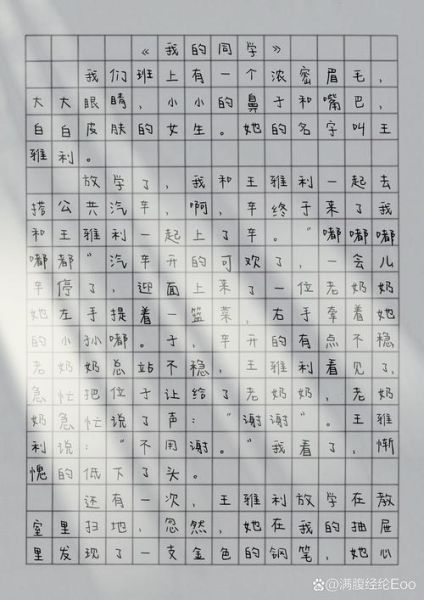 《我的同学》
我们班上有一个浓密眉毛，
大大眼睛，小小的鼻子和嘴巴，
白白皮肤的女生。她的名字叫王
雅利。
放学了，我和王雅利一起去
搭公共汽车，啊，车终于来了我
和王雅利一起上了车。“嘟嘟嘟
嘟嘟”汽车开的可欢了，一会儿
车停了，迎面上来了一位老奶奶
她左手提着一篮菜，右手牵着她
的小孙嘟。于，车开的有点不稳
老奶奶总站不稳，王雅利看见了，
急忙把位子让给了老奶奶，老奶
奶急忙说了声：“谢谢”。王雅
利说：“不用谢。”我看了，惭
愧的低下了头。
还有一次，王雅利放学在教
室里扫地，忽然，她在我的抽屉
里发现了一支金色的钢笔，她心
@满腹经纶Eoo